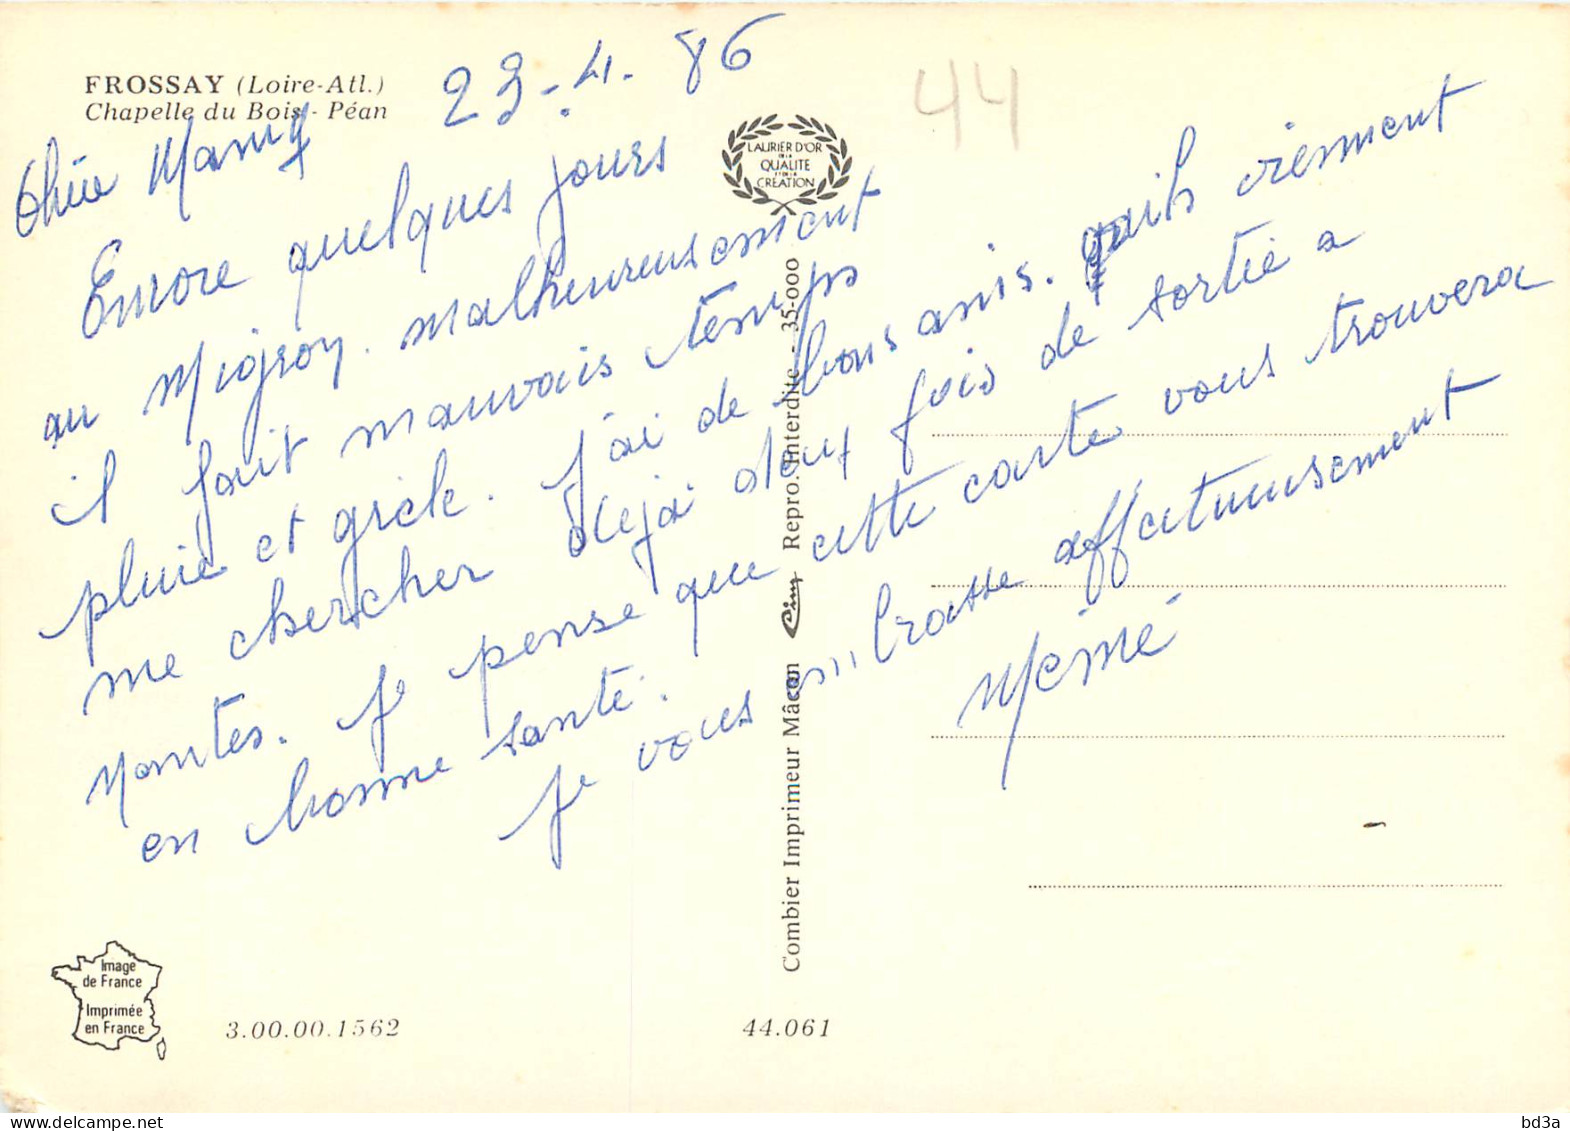 FROSSAY (Loire-Atl.)
Chapelle du Bois - Péan
23-4-86
44
Chère Mamy
Encore quelques jours
au Migron. malheureusement
il fait mauvais temps
pluie et grêle. J'ai de bons amis. qu'ils viennent
me chercher déjà deux fois de sortie a
Nantes. Je pense que cette carte vous trouvera
en bonne santé.
Je vous embrasse affectueusement
Mémé
LAURIER D'OR
DE LA
QUALITE
ET DE LA
CREATION
Combier Imprimeur Mâcon Cim Repro. Interdite - 35-000
Image
de France
Imprimée
en France
3.00.00.1562
44.061
bd3a